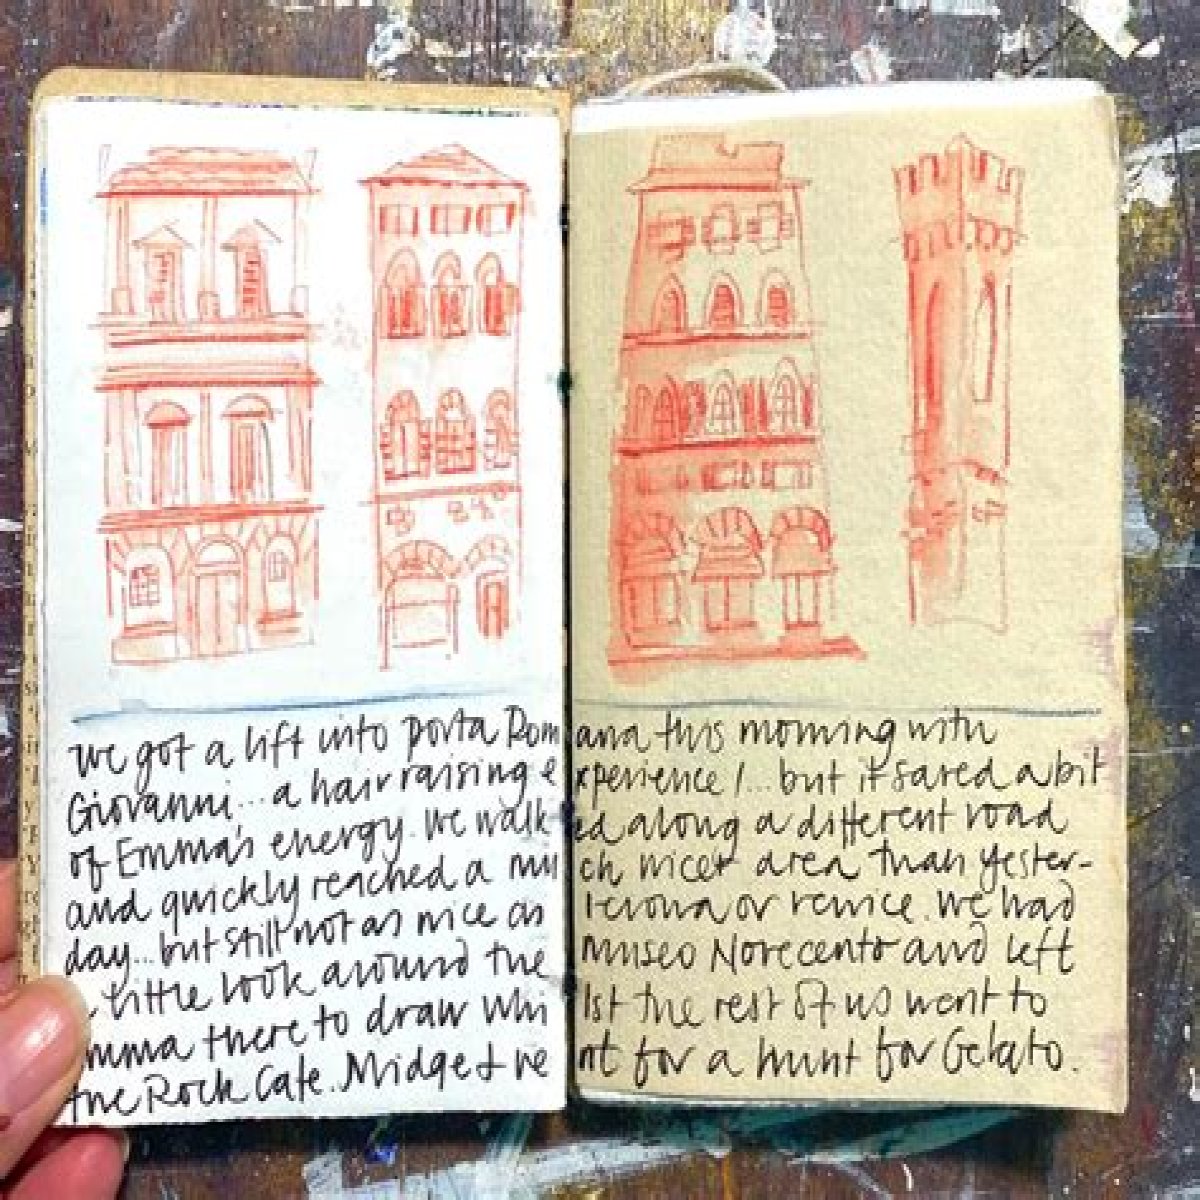 We got a lift into porta Romana this morning with
Giovanni... a hair raising experience!... but it saved a bit
of Emma's energy. We walked along a different road
and quickly reached a much nicer area than yester-
day... but still not as nice as Verona or Venice. We had
a little look around the Museo Novecento and left
Emma there to draw whilst the rest of us went to
the Rock Cafe. Midge & me went for a hunt for Gelato.